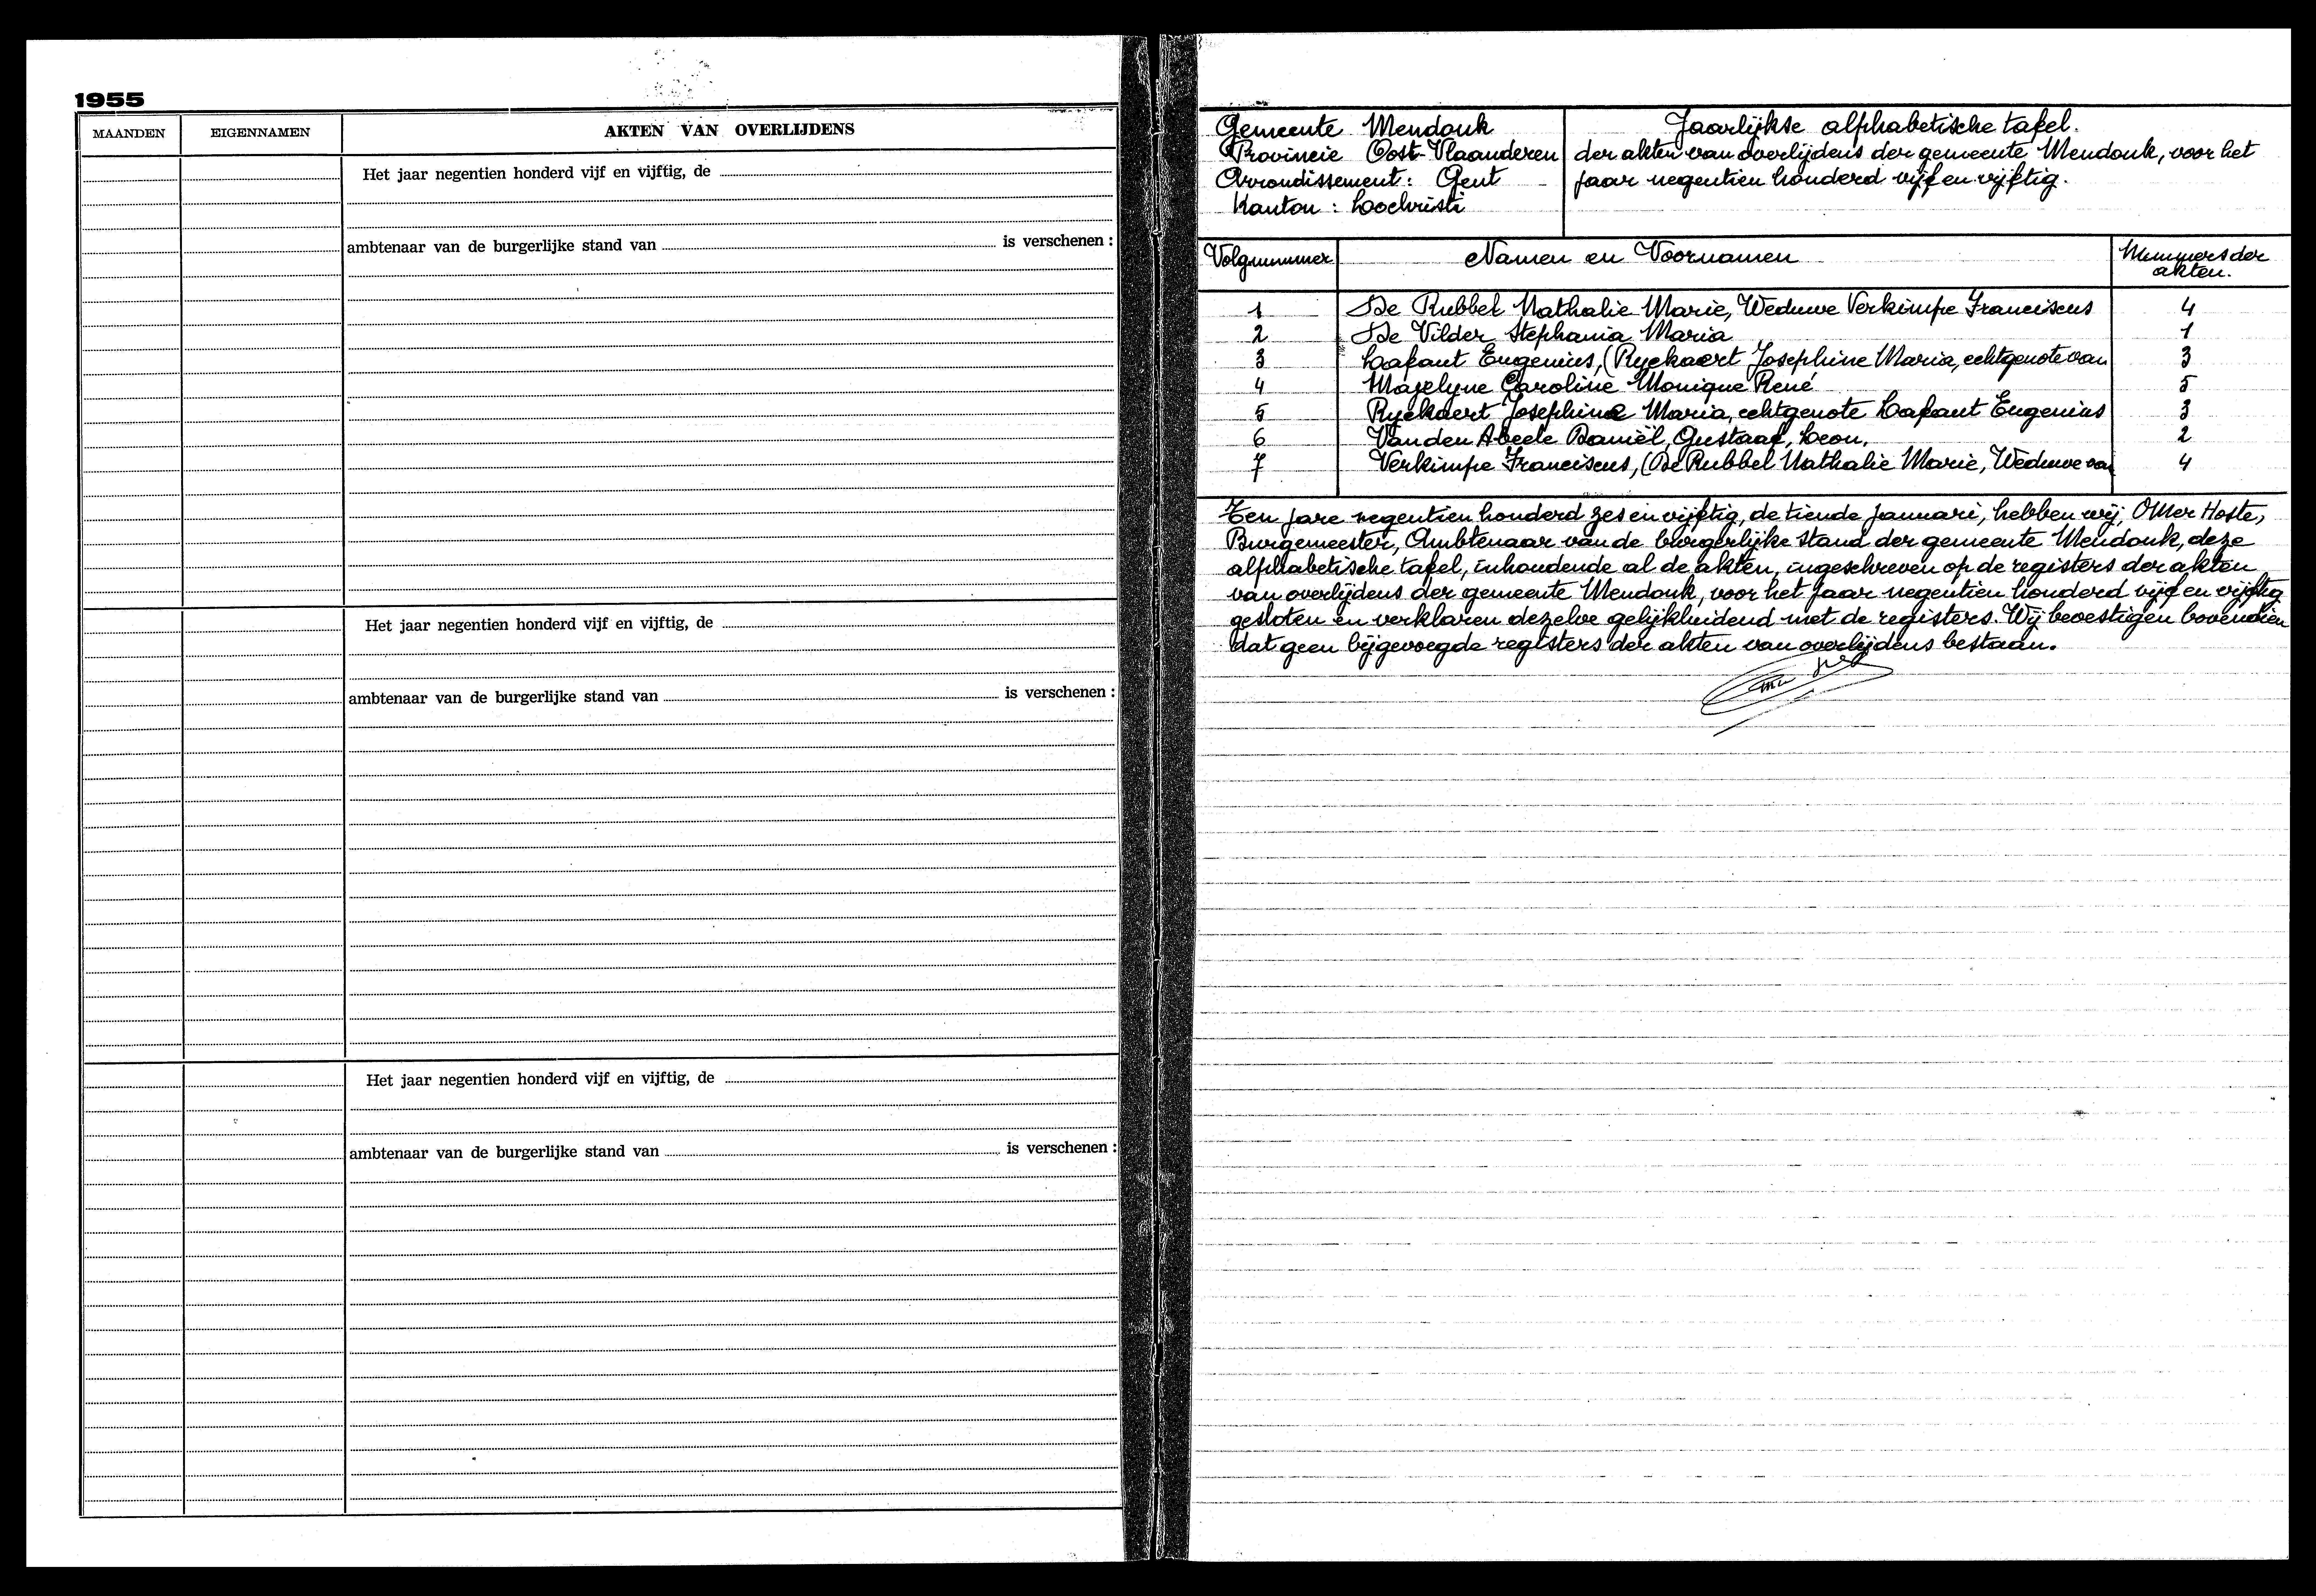 1955
MAANDEN EIGENNAMEN AKTEN VAN OVERLIJDENS
Het jaar negentien honderd vijf en vijftig, de
ambtenaar van de burgerlijke stand van is verschenen :
Het jaar negentien honderd vijf en vijftig, de
ambtenaar van de burgerlijke stand van is verschenen :
Het jaar negentien honderd vijf en vijftig, de
ambtenaar van de burgerlijke stand van is verschenen :
Gemeente Mendonk
Provincie Oost-Vlaanderen
Arrondissement : Gent
Kanton : Lochristi
Jaarlijkse alphabetische tafel.
der akten van overlijdens der gemeente Mendonk, voor het
jaar negentien honderd vijf en vijftig.
Volgnummer Namen en Voornamen Nummers der
akten.
1 De Rubbel Nathalie Marie, Weduwe Verkimpe Franciscus 4
2 De Vilder Stephania Maria 1
3 Lafaut Eugenius, (Ryckaert Josephine Maria, echtgenote van 3
4 Mazelyne Caroline Monique René 5
5 Ryckaert Josephine Maria, echtgenote Lafaut Eugenius 3
6 Vanden Abeele Daniël, Gustaaf, Leon. 2
7 Verkimpe Franciscus, (De Rubbel Nathalie Marie, Weduwe van 4
Ten jare negentien honderd zes en vijftig, de tiende januari, hebben wij, Omer Hoste,
Burgemeester, Ambtenaar van de burgerlijke stand der gemeente Mendonk, deze
alphabetische tafel, inhoudende al de akten, ingeschreven op de registers der akten
van overlijdens der gemeente Mendonk, voor het jaar negentien honderd vijf en vijftig
gesloten en verklaren dezelve gelijkluidend met de registers. Wij bevestigen bovendien
dat geen bijgevoegde registers der akten van overlijdens bestaan.